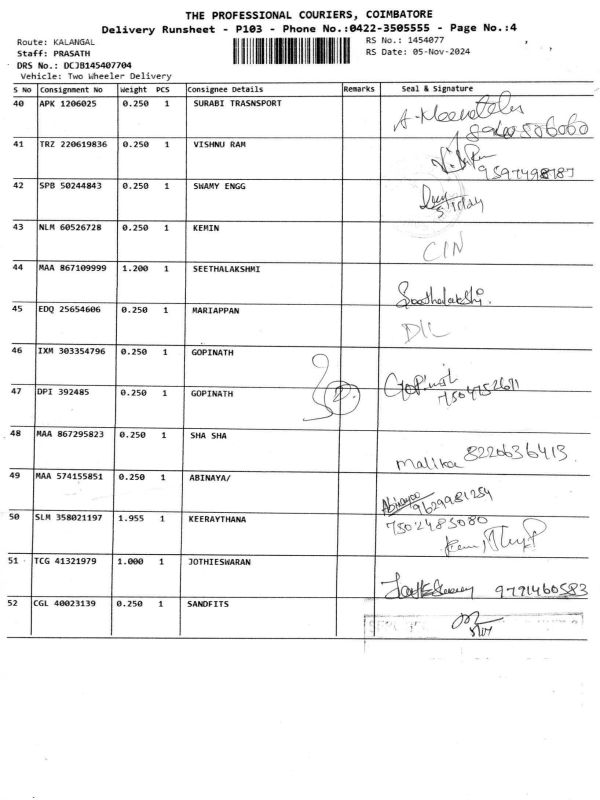 THE PROFESSIONAL COURIERS, COIMBATORE
Delivery Runsheet - P103 - Phone No.:0422-3505555 - Page No.:4
Route: KALANGAL RS No.: 1454077
Staff: PRASATH RS Date: 05-Nov-2024
DRS No.: DCJB145407704
Vehicle: Two Wheeler Delivery
S No Consignment No Weight PCS Consignee Details Remarks Seal & Signature
40 APK 1206025 0.250 1 SURABI TRASNSPORT
41 TRZ 220619836 0.250 1 VISHNU RAM
9597498787
42 SPB 50244843 0.250 1 SWAMY ENGG
43 NLM 60526728 0.250 1 KEMIN
CIN
44 MAA 867109999 1.200 1 SEETHALAKSHMI
Seethalakshi.
45 EDQ 25654606 0.250 1 MARIAPPAN
D/L
46 IXM 303354796 0.250 1 GOPINATH
Gopinath
47 DPI 392485 0.250 1 GOPINATH
2.
7504752671
48 MAA 867295823 0.250 1 SHA SHA
Malika 8220636413
49 MAA 574155851 0.250 1 ABINAYA/
Abinayaa 9629981254
50 SLM 358021197 1.955 1 KEERAYTHANA
7502485080
51 TCG 41321979 1.000 1 JOTHIESWARAN
9791460583
52 CGL 40023139 0.250 1 SANDFITS